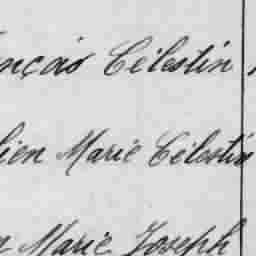 nçois Célestin
lien Marie Célestin
Marie Joseph